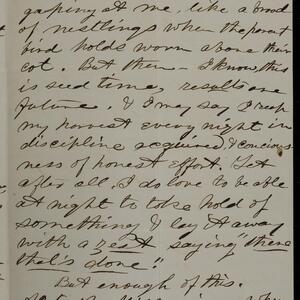 gasping at me, like a brood
of nestlings when the parent
bird holds worm above their
cot. But then – I know, this
is seed time, results are
future. & I may say I reap
my harvest every night in
discipline acquired & conscious-
ness of honest effort. Yet
after all, I do love to be able
at night to take hold of
something & lay it away
with a zest saying "there
that's done."
But enough of this.